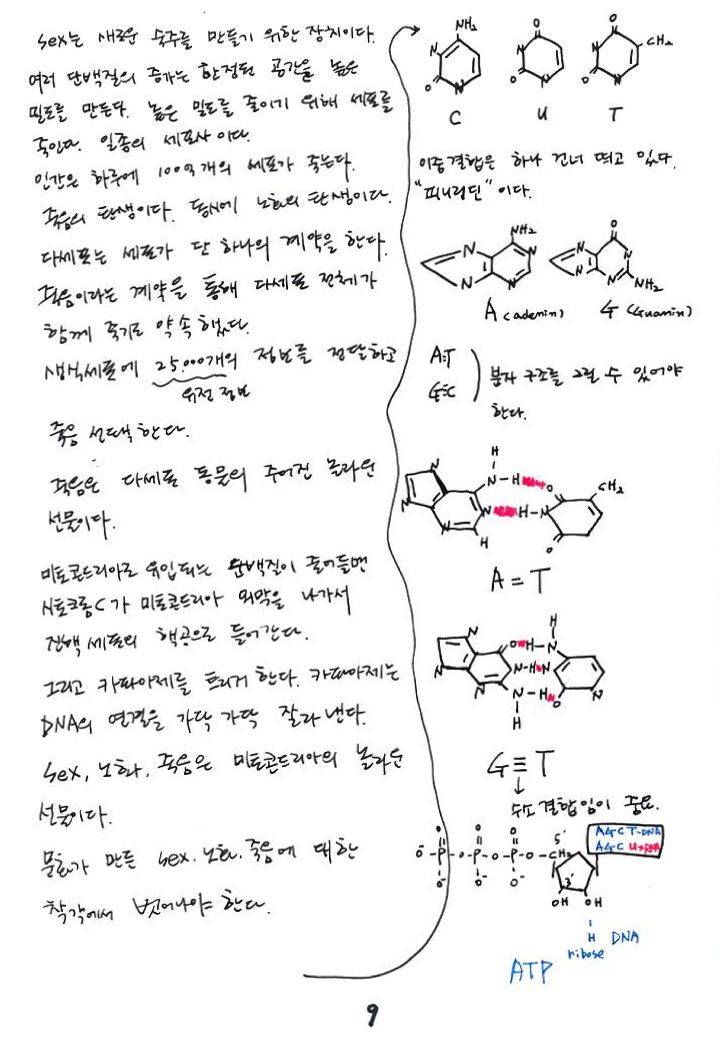 Sex는 새로운 숙주를 만들기 위한 장치이다.
여러 단백질의 증가는 한정된 공간을 높은
밀도를 만든다. 높은 밀도를 줄이기 위해 세포를
죽인다. 일종의 세포사 이다.
인간은 하루에 100억 개의 세포가 죽는다.
죽음의 탄생이다. 동시에 노화의 탄생이다.
다세포는 세포가 단 하나의 계약을 한다.
죽음이라는 계약을 통해 다세포 전체가
함께 죽기로 약속했다.
생식세포에 25,000개의 정보를 전달하고
유전 정보
죽음 선택 한다.
죽음은 다세포 동물의 주어진 놀라운
선물이다.
미토콘드리아로 유입되는 단백질이 줄어들면
시토크롬C가 미토콘드리아 외막을 나가서
진핵 세포의 핵공으로 들어간다.
그리고 카파아제를 트리거 한다. 카파아제는
DNA의 연결을 가닥 가닥 잘라 낸다.
Sex, 노화, 죽음은 미토콘드리아의 놀라운
선물이다.
문화가 만든 sex. 노화. 죽음에 대한
착각에서 벗어나야 한다.
NH₂
N
O
N
C
O
N
O
N
U
O
N
CH₂
O
N
T
이중결합은 하나 건너 띄고 있다.
"피내리딘" 이다.
NH₂
N
N
N
N
A (adenin)
O
N
N
N
N
NH₂
G (Guanin)
A=T
G≡C
분자 구조를 그릴 수 있어야
한다.
H
N
N-H
O
CH₂
N
N
N
H-N
H
O
A = T
H
N
O
H-N
N
N-H
N
N
N-H
O
N
H
G ≡ T
수소 결합임이 중요.
O O O 5'
O⁻-P-O-P-O-P-O-CH₂
O⁻ O⁻ O⁻
AGCT-DNA
AGC U→RNA
3'
OH OH
H DNA
ribose
ATP
9